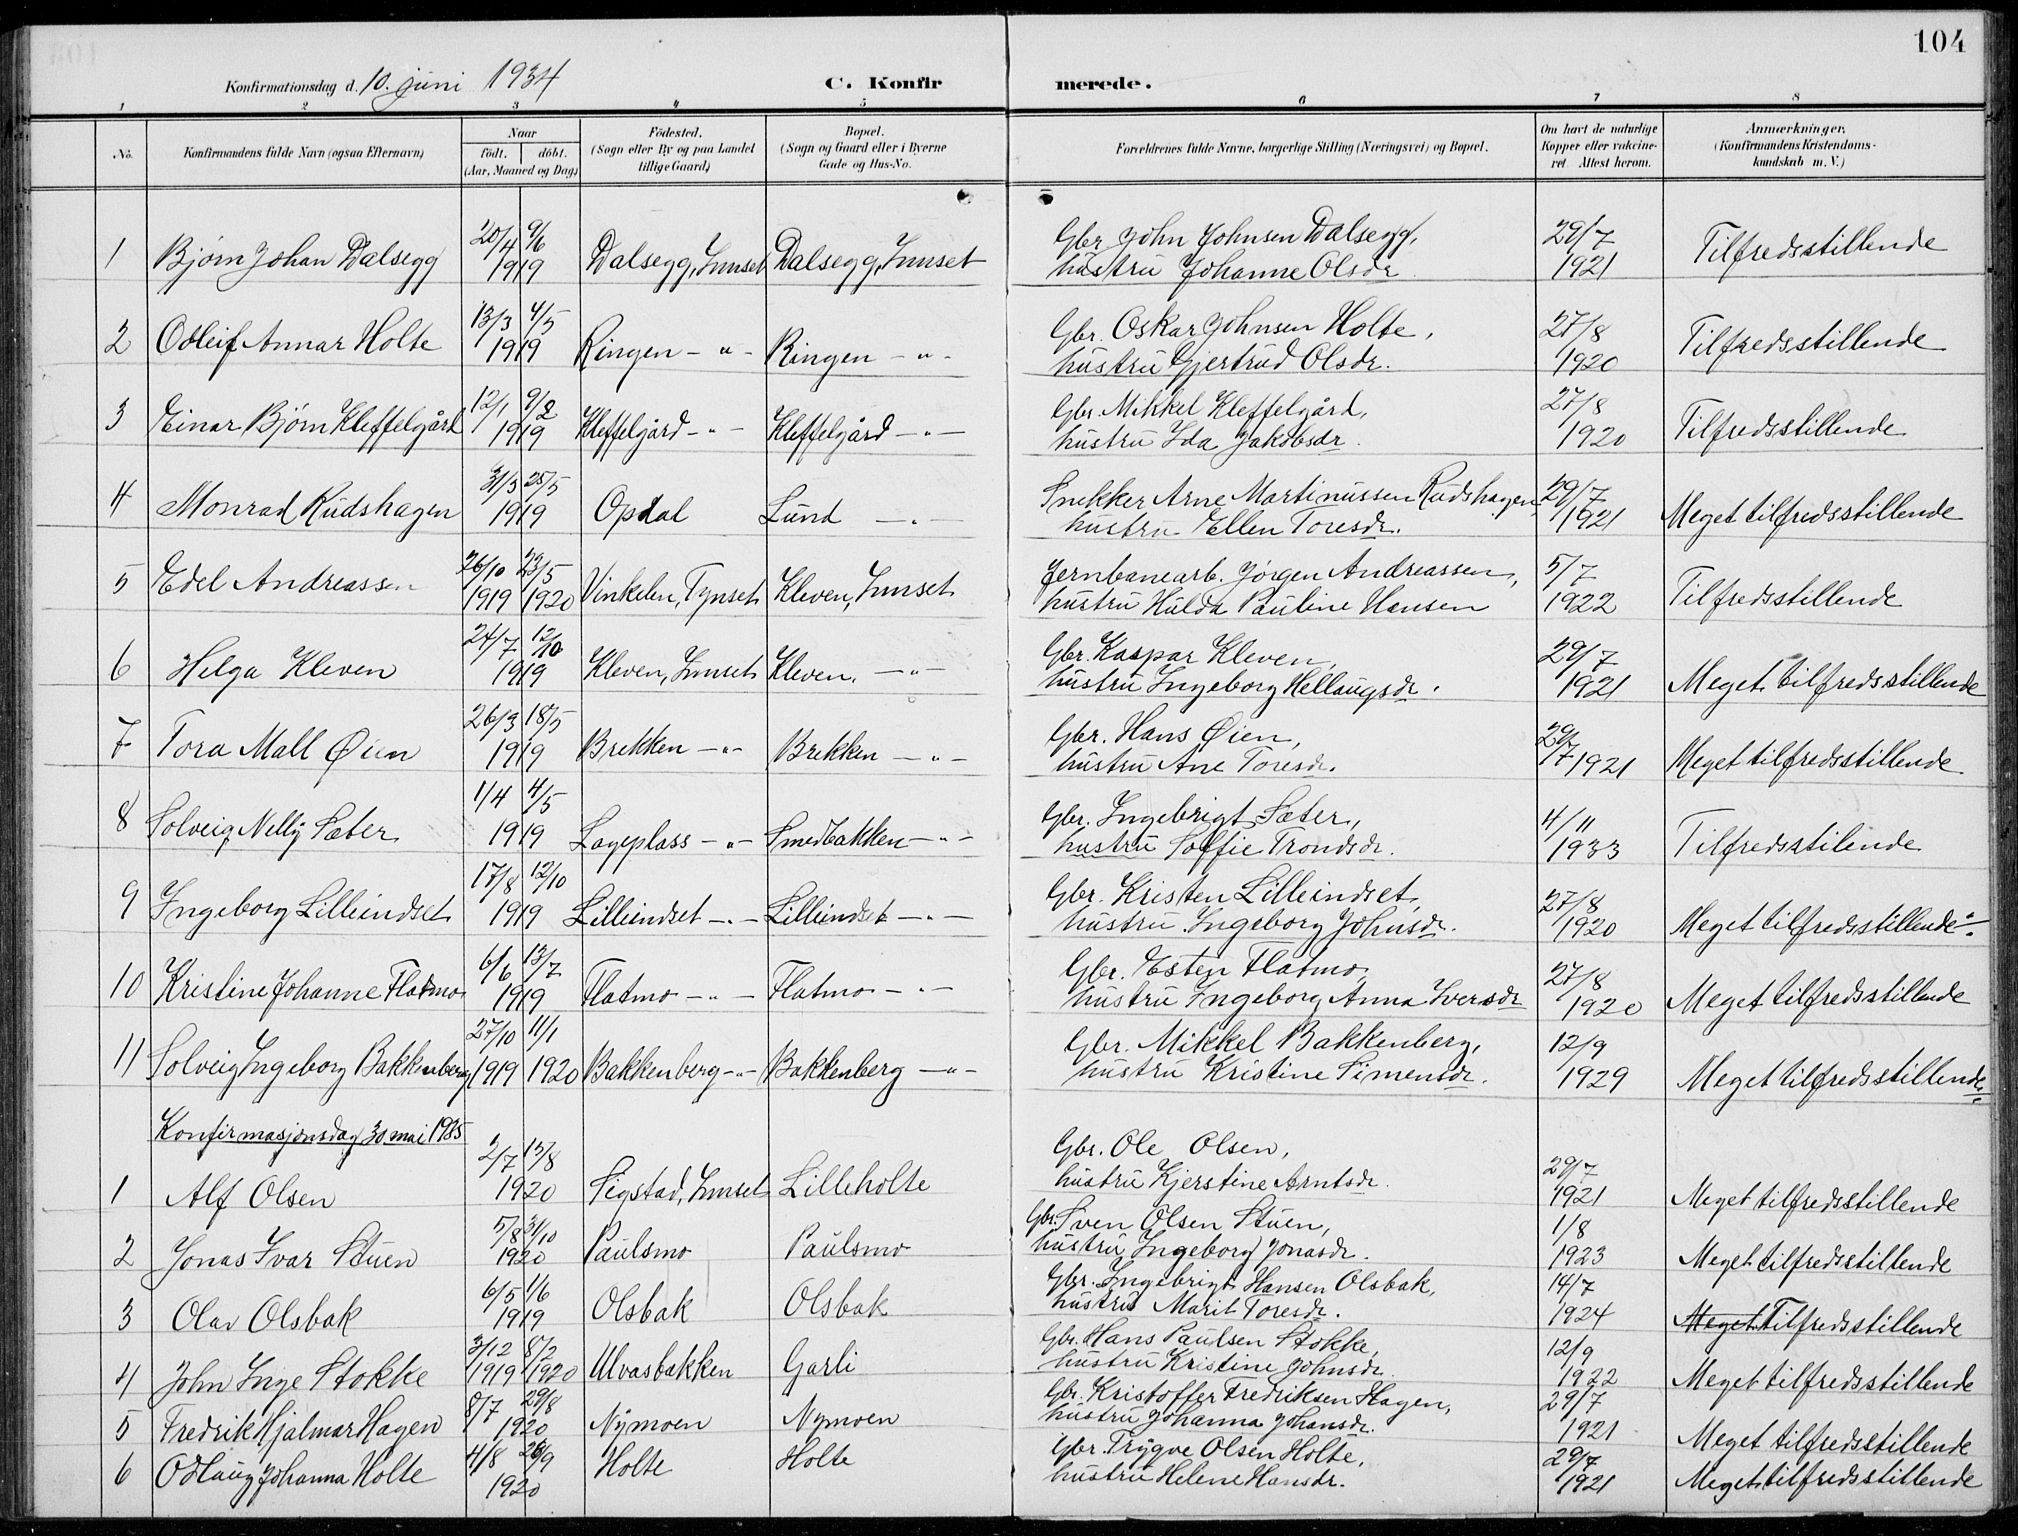 104
Konfirmationsdag d. 10. juni 1934 C. Konfirmerede.
1 2 3 4 5 6 7 8
No. Konfirmandens fulde Navn (ogsaa Efternavn) Naar født. døbt. (Aar, Maaned og Dag) Fødested. (Sogn eller By og paa Landet tillige Gaard) Bopæl. (Sogn og Gaard eller i Byerne Gade og Hus-No. Forældrenes fulde Navne, borgerlige Stilling (Næringsvei) og Bopæl. Om havt de naturlige Kopper eller vakcineret Attest herom. Anmærkninger. (Konfirmandens Kristendomskundskab m. V.)
1 Bjørn Johan Dalsegg 20/4 9/6 1919 Dalsegg, Innset Dalsegg, Innset Gbr. John Johnsen Dalsegg, hustru Johanne Olsdr. 29/7 1921 Tilfredsstillende
2 Odleif Annar Holte 13/3 4/5 1919 Ringen - " - Ringen - " - Gbr. Oskar Johnsen Holte, hustru Gjertrud Olsdr. 27/8 1920 Tilfredsstillende
3 Einar Bjørn Kleffelgård 12/1 9/2 1919 Kleffelgård - " - Kleffelgård - " - Gbr. Mikkel Kleffelgård, hustru Ida Jakobsdr. 27/8 1920 Tilfredsstillende
4 Monrad Rudshagen 31/3 25/5 1919 Opdal Lund - " - Snekker Arne Martinussen Rudshagen, hustru Ellen Toresdr. 29/7 1921 Meget tilfredsstillende
5 Edel Andreassen 26/10 1919 23/5 1920 Vinkelen, Tynset Kleven, Innset Jernbanearb. Jørgen Andreassen, hustru Hulda Pauline Hansen 5/7 1922 Tilfredsstillende
6 Helga Kleven 24/7 12/10 1919 Kleven, Innset Kleven, - " - Gbr. Kaspar Kleven, hustru Ingeborg Hellaugsdr. 29/7 1921 Meget tilfredsstillende
7 Tora Mall Øien 26/3 18/5 1919 Brekken - " - Brekken - " - Gbr. Hans Øien, hustru Ane Toresdr. 29/7 1921 Meget tilfredsstillende
8 Solveig Nelly Sæter 1/4 4/5 1919 Lageplass - " - Smedbakken - " - Gbr. Ingebrigt Sæter, hustru Soffie Trondsdr. 4/11 1933 Tilfredsstilende
9 Ingeborg Lilleindset 17/8 12/10 1919 Lilleindset - " - Lilleindset - " - Gbr. Kristen Lilleindset, hustru Ingeborg Johnsdr. 27/8 1920 Meget tilfredsstillende
10 Kristine Johanne Flatmo 6/6 13/7 1919 Flatmo - " - Flatmo - " - Gbr. Esten Flatmo, hustru Ingeborg Anna Iversdr 27/8 1920 Meget tilfredsstillende
11 Solveig Ingeborg Bakkenberg 27/10 1919 11/1 1920 Bakkenberg - " - Bakkenberg - " - Gbr. Mikkel Bakkenberg, hustru Kristine Simensdr. 12/9 1929 Meget tilfredsstillende
Konfirmasjonsdag 30 mai 1935
1 Alf Olsen 2/7 15/8 1920 Sigstad, Innset Lilleholte Gbr. Ole Olsen, hustru Kjerstine Arntsdr. 29/7 1921 Meget tilfredsstillende
2 Jonas Ivar Stuen 5/8 31/10 1920 Paulsmo Paulsmo Gbr. Sven Olsen Stuen, hustru Ingeborg Jonasdr. 1/8 1923 Meget tilfredsstillende
3 Olav Olsbak 6/5 1/6 1919 Olsbak Olsbak Gbr. Ingebrigt Hansen Olsbak, hustru Marit Toresdr. 14/7 1924 Meget Tilfredsstillende
4 John Inge Stokke 3/12 1919 8/2 1920 Ulvasbakken Garli Gbr. Hans Paulsen Stokke, hustru Kristine Johnsdr. 12/9 1922 Meget tilfredsstillende
5 Fredrik Hjalmar Hagen 8/7 29/8 1920 Nymoen Nymoen Gbr. Kristoffer Fredriksen Hagen, hustru Johanna Johansdr. 29/7 1921 Meget tilfredsstillende
6 Odlaug Johanna Holte 4/8 26/9 1920 Holte Holte Gbr. Trygve Olsen Holte, hustru Helene Hansdr. 29/7 1921 Meget tilfredsstillende